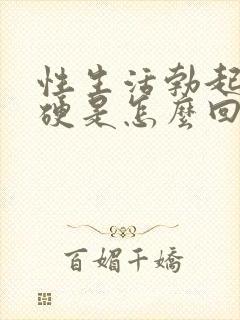 性生活勃起
硬是怎麼回
百媚千嬌